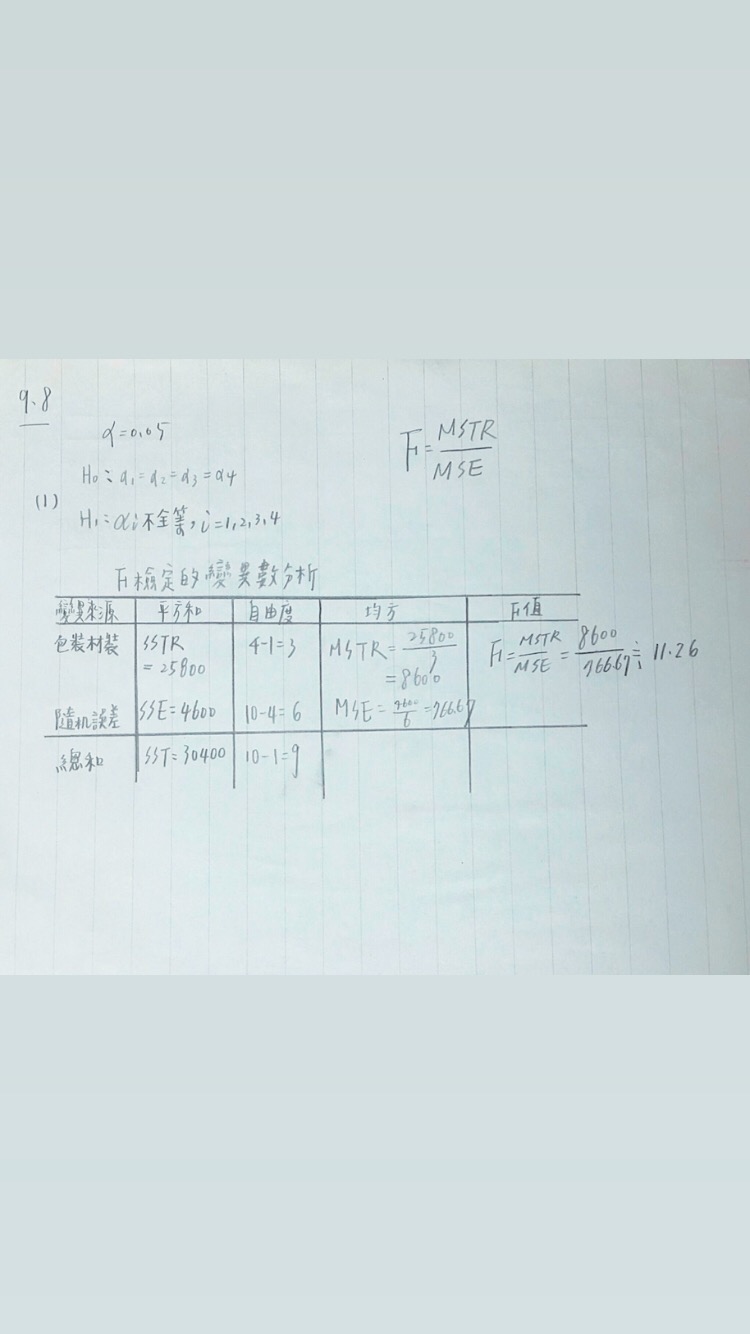 9.8
α=0.05
F=MSTR/MSE
H₀:α₁=α₂=α₃=α4
(1)
H₁:αi不全等,i=1,2,3,4
F檢定的變異數分析
變異來源 平方和 自由度 均方 F值
包裝材裝 SSTR =25800 4-1=3 MSTR=25800/3 =8600 F=MSTR/MSE=8600/766.67≒11.26
隨机誤差 SSE=4600 10-4=6 MSE=4600/6=766.67
總和 SST=30400 10-1=9